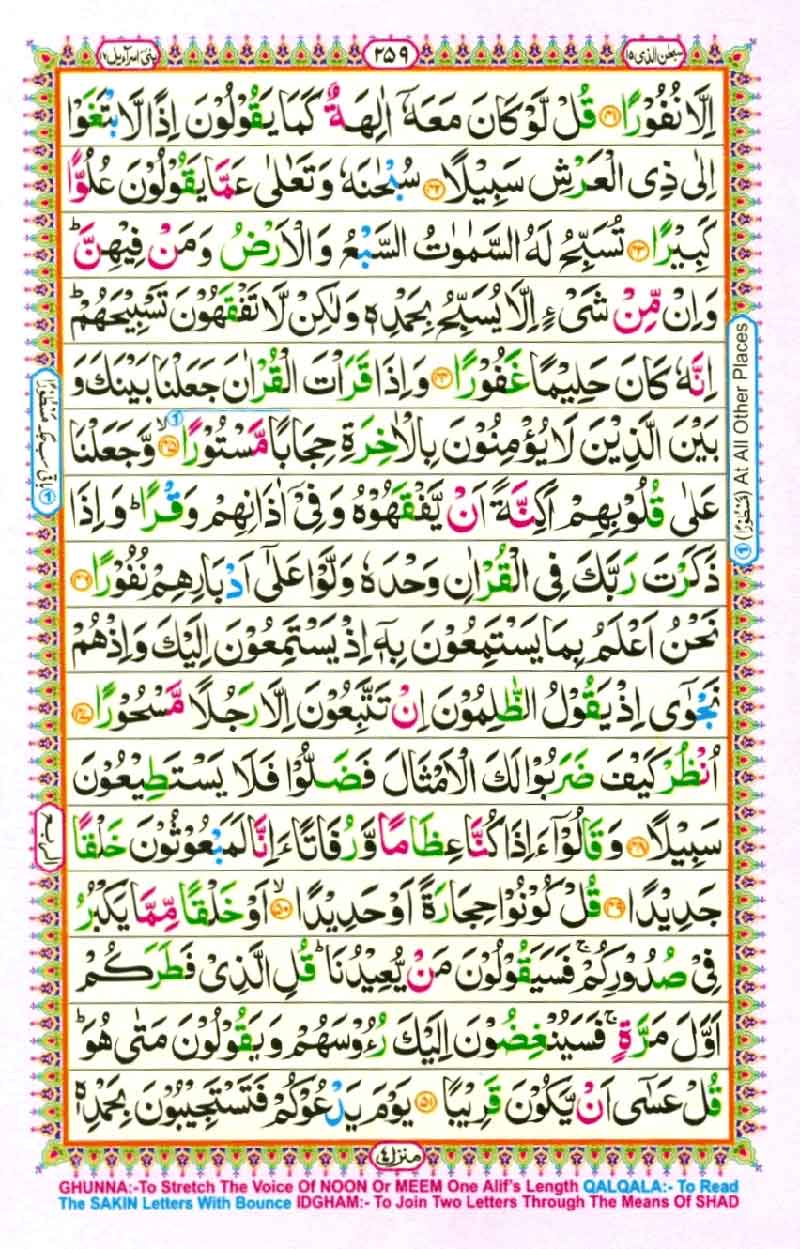 سبحٰن الذی ۱۵
۲۵۹
بنیٓ اسرآءیل ۱۷
اِلَّا نُفُوْرًا ﴿۴۱﴾ قُلْ لَّوْ كَانَ مَعَهٗۤ اٰلِهَةٌ كَمَا یَقُوْلُوْنَ اِذًا لَّابْتَغَوْا
اِلٰى ذِی الْعَرْشِ سَبِیْلًا ﴿۴۲﴾ سُبْحٰنَهٗ وَ تَعٰلٰى عَمَّا یَقُوْلُوْنَ عُلُوًّا
كَبِیْرًا ﴿۴۳﴾ تُسَبِّحُ لَهُ السَّمٰوٰتُ السَّبْعُ وَ الْاَرْضُ وَ مَنْ فِیْهِنَّ ؕ
وَ اِنْ مِّنْ شَیْءٍ اِلَّا یُسَبِّحُ بِحَمْدِهٖ وَ لٰكِنْ لَّا تَفْقَهُوْنَ تَسْبِیْحَهُمْ ؕ
اِنَّهٗ كَانَ حَلِیْمًا غَفُوْرًا ﴿۴۴﴾ وَ اِذَا قَرَاْتَ الْقُرْاٰنَ جَعَلْنَا بَیْنَكَ وَ
بَیْنَ الَّذِیْنَ لَا یُؤْمِنُوْنَ بِالْاٰخِرَةِ حِجَابًا مَّسْتُوْرًا ﴿۴۵﴾ۙ وَّ جَعَلْنَا
عَلٰى قُلُوْبِهِمْ اَكِنَّةً اَنْ یَّفْقَهُوْهُ وَ فِیْۤ اٰذَانِهِمْ وَقْرًا ؕ وَ اِذَا
ذَكَرْتَ رَبَّكَ فِی الْقُرْاٰنِ وَحْدَهٗ وَلَّوْا عَلٰۤى اَدْبَارِهِمْ نُفُوْرًا ﴿۴۶﴾
نَحْنُ اَعْلَمُ بِمَا یَسْتَمِعُوْنَ بِهٖۤ اِذْ یَسْتَمِعُوْنَ اِلَیْكَ وَ اِذْ هُمْ
نَجْوٰۤى اِذْ یَقُوْلُ الظّٰلِمُوْنَ اِنْ تَتَّبِعُوْنَ اِلَّا رَجُلًا مَّسْحُوْرًا ﴿۴۷﴾
اُنْظُرْ كَیْفَ ضَرَبُوْا لَكَ الْاَمْثَالَ فَضَلُّوْا فَلَا یَسْتَطِیْعُوْنَ
سَبِیْلًا ﴿۴۸﴾ وَ قَالُوْۤا ءَاِذَا كُنَّا عِظَامًا وَّ رُفَاتًا ءَاِنَّا لَمَبْعُوْثُوْنَ خَلْقًا
جَدِیْدًا ﴿۴۹﴾ قُلْ كُوْنُوْا حِجَارَةً اَوْ حَدِیْدًا ﴿۵۰﴾ۙ اَوْ خَلْقًا مِّمَّا یَكْبُرُ
فِیْ صُدُوْرِكُمْ ۚ فَسَیَقُوْلُوْنَ مَنْ یُّعِیْدُنَا ؕ قُلِ الَّذِیْ فَطَرَكُمْ
اَوَّلَ مَرَّةٍ ۚ فَسَیُنْغِضُوْنَ اِلَیْكَ رُءُوْسَهُمْ وَ یَقُوْلُوْنَ مَتٰى هُوَ ؕ
قُلْ عَسٰۤى اَنْ یَّكُوْنَ قَرِیْبًا ﴿۵۱﴾ یَوْمَ یَدْعُوْكُمْ فَتَسْتَجِیْبُوْنَ بِحَمْدِهٖ
At All Other Places
الربع
منزل ۴
GHUNNA:-To Stretch The Voice Of NOON Or MEEM One Alif's Length QALQALA:- To Read
The SAKIN Letters With Bounce IDGHAM:- To Join Two Letters Through The Means Of SHAD